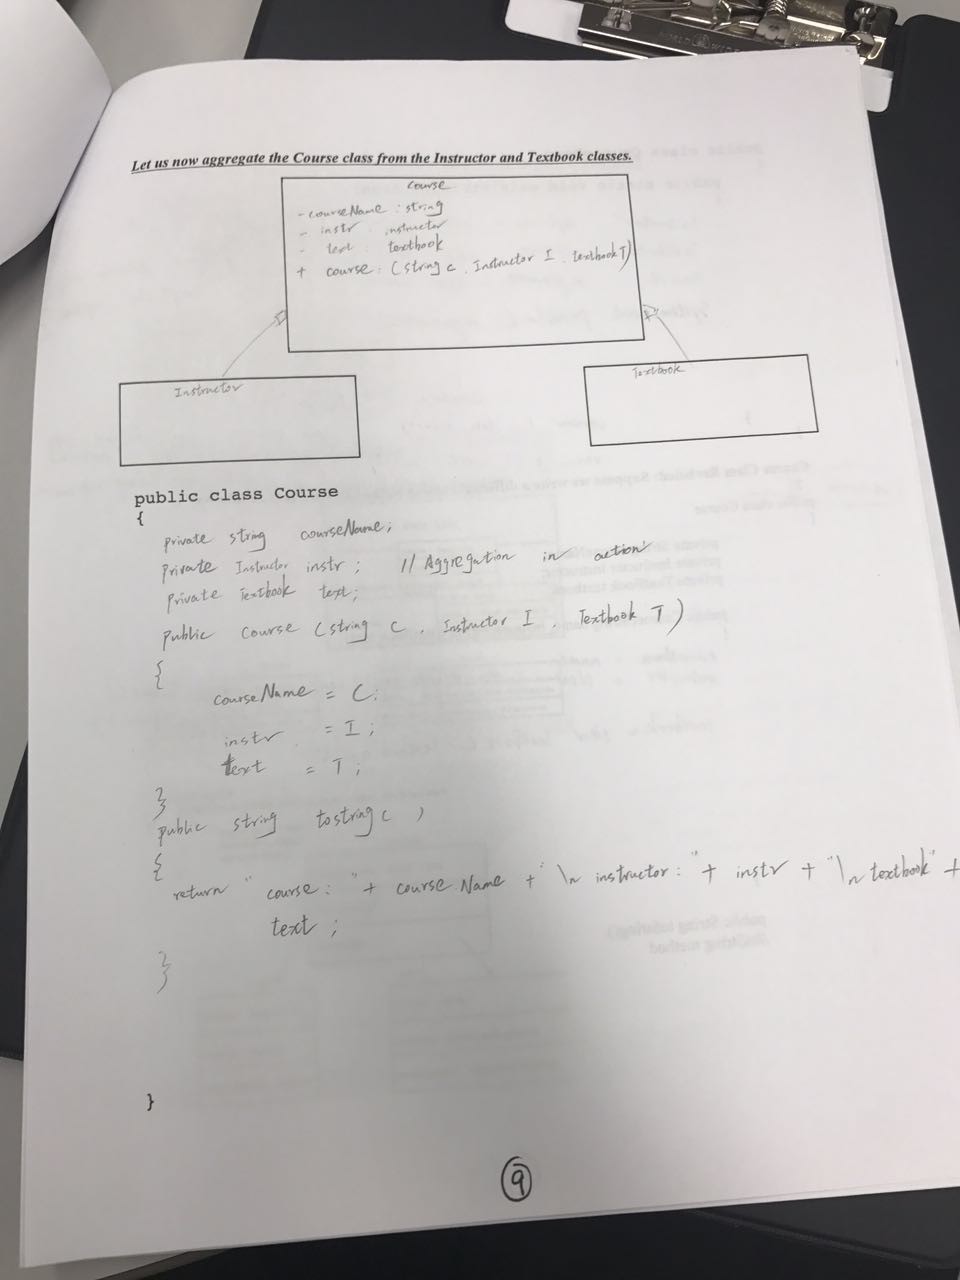 Let us now aggregate the Course class from the Instructor and Textbook classes.
Course
- courseName : string
- instr : instructor
- text : textbook
+ course : (string c, Instructor I, textbook T)
Instructor
Textbook
public class Course
{
private string courseName;
private Instructor instr; // Aggregation in action
private Textbook text;
public course (string c, Instructor I, Textbook T)
{
courseName = C;
instr = I;
text = T;
}
public string tostring ( )
{
return "course: " + courseName + "\n instructor: " + instr + "\n textbook" +
text ;
}
}
9